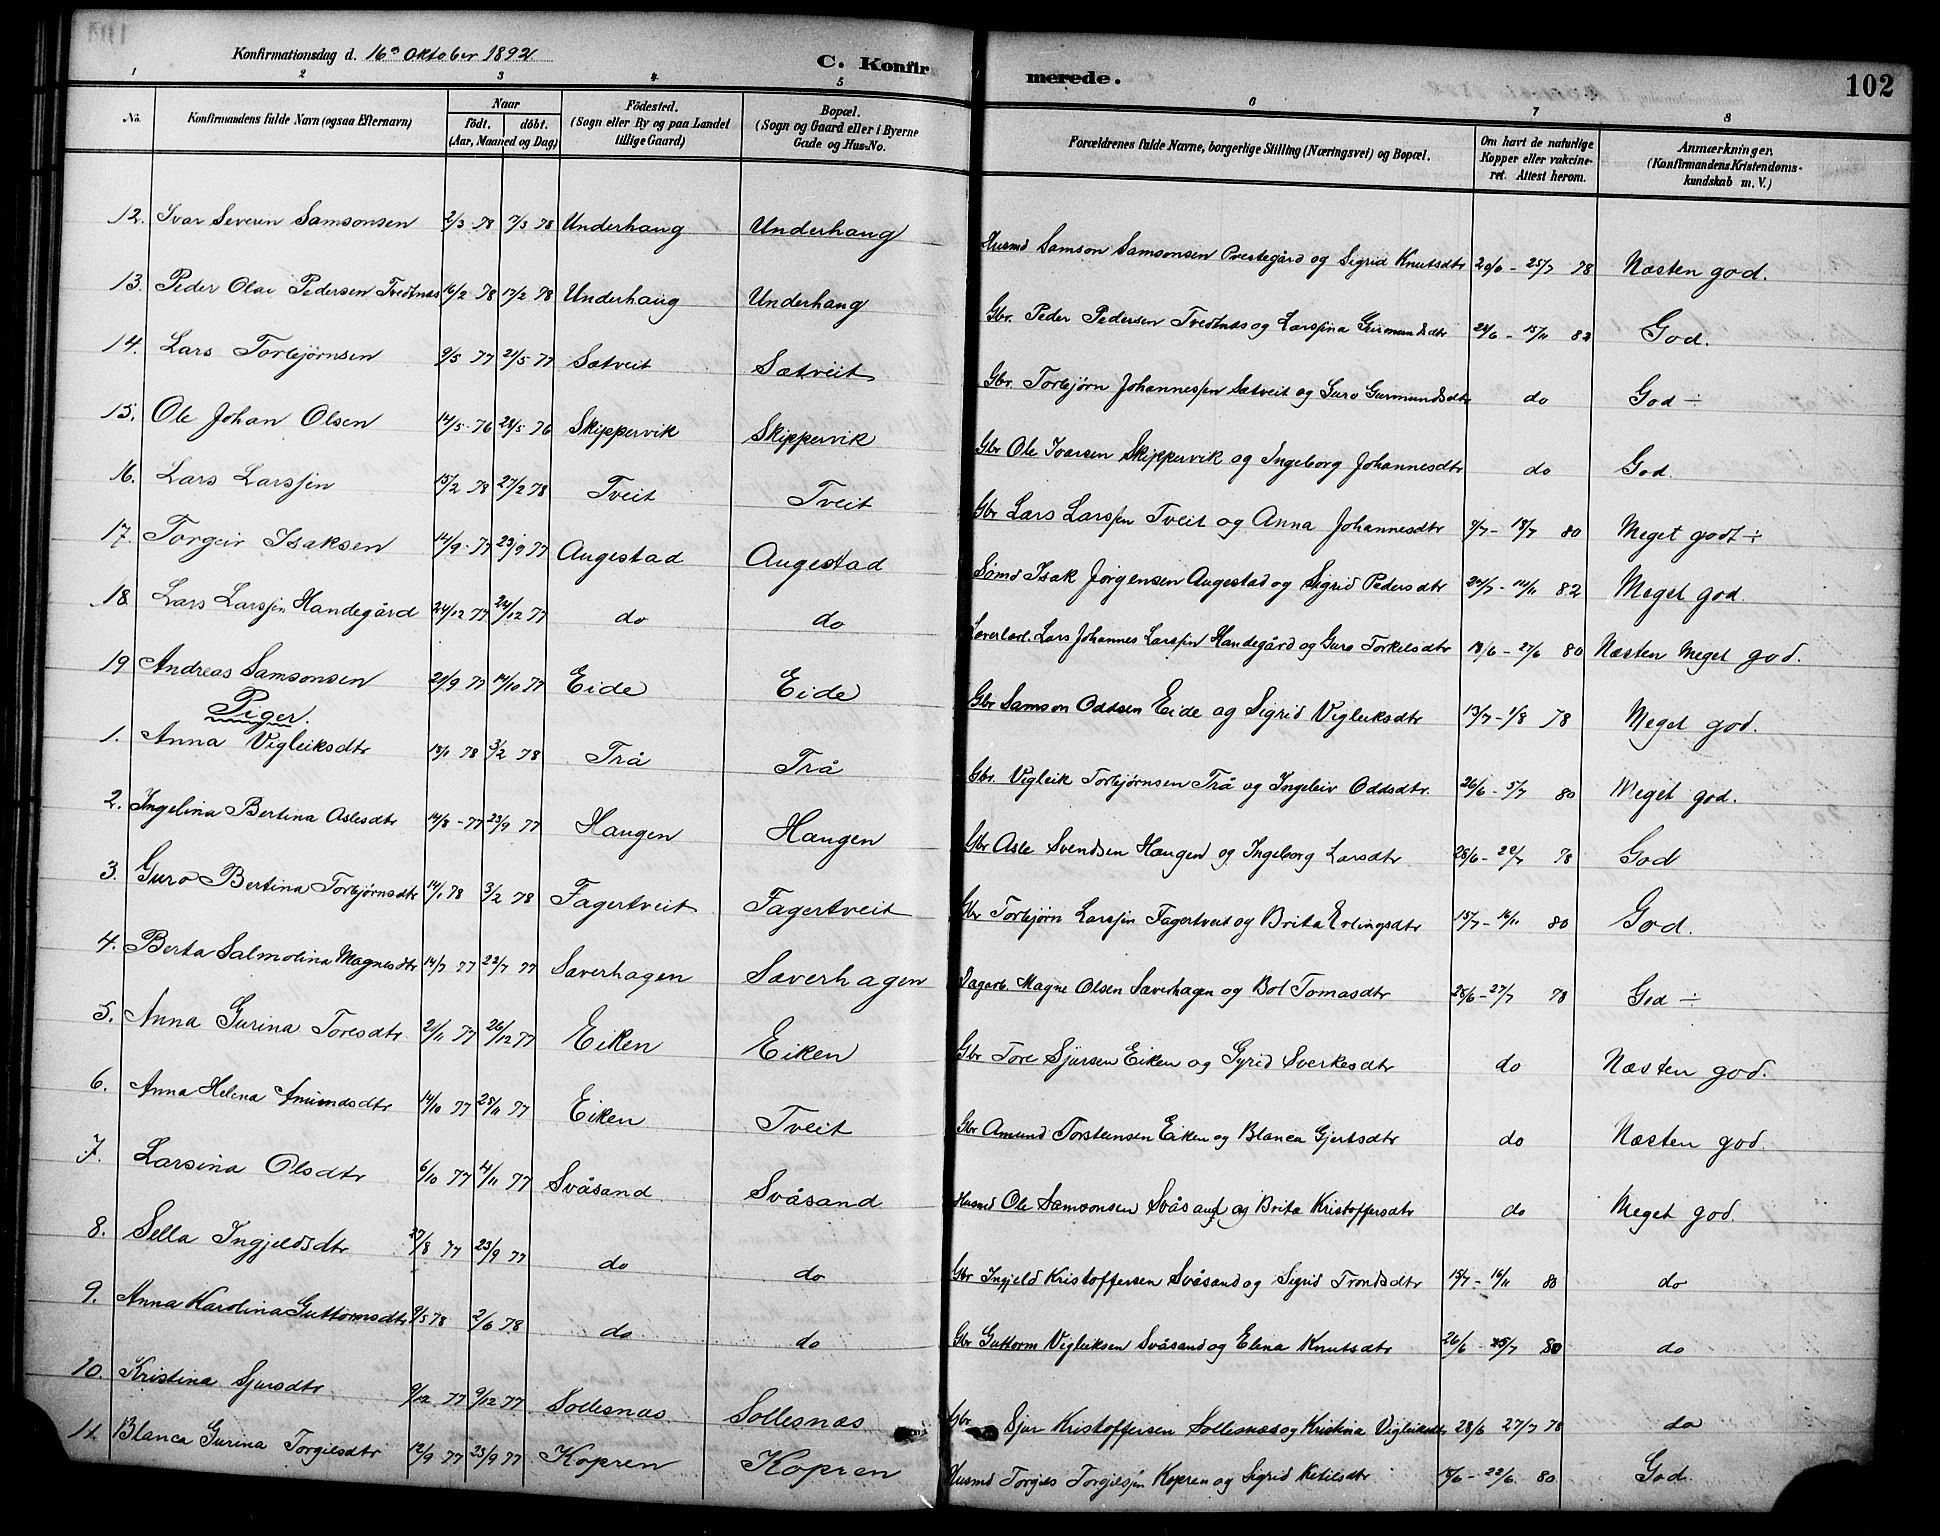 Konfirmationsdag d. 16de Oktober 1892
C. Konfirmerede.
102
1 2 3 4 5 6 7 8
No. | Konfirmandens fulde Navn (ogsaa Efternavn) | Naar födt. döbt. (Aar, Maaned og Dag) | Födested. (Sogn eller By og paa Landet tillige Gaard) | Bopæl. (Sogn og Gaard eller i Byerne Gade og Hus-No. | Forældrenes fulde Navne, borgerlige Stilling (Næringsvei) og Bopæl. | Om havt de naturlige Kopper eller vakcineret. Attest herom. | Anmærkninger, (Konfirmandens Kristendomskundskab m. V.)
12. Ivar Severin Samsonsen 2/3 78 7/3 78 Underhaug Underhaug Husmd Samson Samsonsen Prestegård og Sigrid Knutsdtr 20/6 - 25/7 78 Næsten god.
13. Peder Olai Pedersen Tvedtnæs 16/2 78 17/2 78 Underhaug Underhaug Gbr. Peder Pedersen Tvedtnæs og Larsjina Gurmundsdtr 24/6 - 15/11 82 God.
14. Lars Torbjørnsen 9/5 77 21/5 77 Sætveit Sætveit Gbr. Torbjørn Johannesjen Sætveit og Guro Gurmundsdtr do God ÷
15. Ole Johan Olsen 14/5 76 28/5 76 Skippervik Skippervik Gbr Ole Ivarsen Skippervik og Ingeborg Johannesdtr do God.
16. Lars Larsjen 15/2 78 27/2 78 Tveit Tveit Gbr Lars Larsjen Tveit og Anna Johannesdtr 9/7 - 18/7 80 Meget godt ÷
17. Torgeir Isaksen 14/9 77 23/9 77 Augestad Augestad Sømd Isak Jørgensen Augestad og Sigrid Pedersdtr 20/7 - 14/11 82 Meget god.
18. Lars Larsjen Handegård 24/12 77 26/12 77 do do Lars Johannes Larsjen Handegård og Guro Torkelsdtr 18/6 - 27/6 80 Næsten Meget god.
19 Andreas Samsonsen 21/9 77 14/10 77 Eide Eide Gbr Samson Oddsen Eide og Sigrid Vigleiksdtr 13/7 - 1/8 78 Meget god.
Piger.
1. Anna Vigleiksdtr 18/1 78 3/2 78 Trå Trå Gbr. Vigleik Torbjørnsen Trå og Ingeleiv Oddsdtr. 26/6 - 5/7 80 Meget god.
2. Ingelina Bertina Aslesdtr 14/8 - 77 23/9 77 Haugen Haugen Gbr Asle Svendsen Haugen og Ingeborg Larsdtr 28/6 - 22/7 78 God
3. Guro Bertina Torbjørnsdtr 14/1 78 3/2 78 Fagertveit Fagertveit Gbr Torbjørn Larsjen Fagertveit og Brita Erlingsdtr 15/7 - 16/11 80 God.
4. Berta Salmolina Magnesdtr 14/7 77 22/7 77 Saverhagen Saverhagen Dagarb. Magne Olsen Saverhagen og Bol Tomasdtr 28/6 - 27/7 78 God ÷
5. Anna Gurina Toresdtr 21/11 77 26/12 77 Eiken Eiken Gbr Tore Sjursen Eiken og Gyrid Sverkesdtr do Næsten god.
6. Anna Helena Amundsdtr 14/10 77 25/11 77 Eiken Tveit Gbr Amund Torsteinsen Eiken og Blanca Gjertsdtr do Næsten god.
7. Larsina Olsdtr 6/10 77 4/11 77 Svåsand Svåsand Husmd Ole Samsonsen Svåsand og Brita Kristoffersdtr do Meget god.
8. Sella Ingjeldsdtr 27/8 77 23/9 77 do do Gbr Ingjeld Kristoffersen Svåsand og Sigrid Trondsdtr 15/7 - 16/11 80 do
9. Anna Karolina Guttormsdtr 9/5 78 2/6 78 do do Gbr Guttorm Vigleiksen Svåsand og Elena Knutsdtr 26/6 - 25/7 80 do
10. Kristina Sjursdtr 9/12 77 9/12 77 Sollesnæs Sollesnæs Gbr Sjur Kristoffersen Sollesnæs og Kristina Vigleiksdtr 28/6 27/7 78 do
11. Blanca Gurina Torgilsdtr 12/9 77 23/9 77 Kopren Kopren Husmd Torgils Torgilsjen Kopren og Sigrid Ketilsdtr 18/6 - 22/6 80 God.